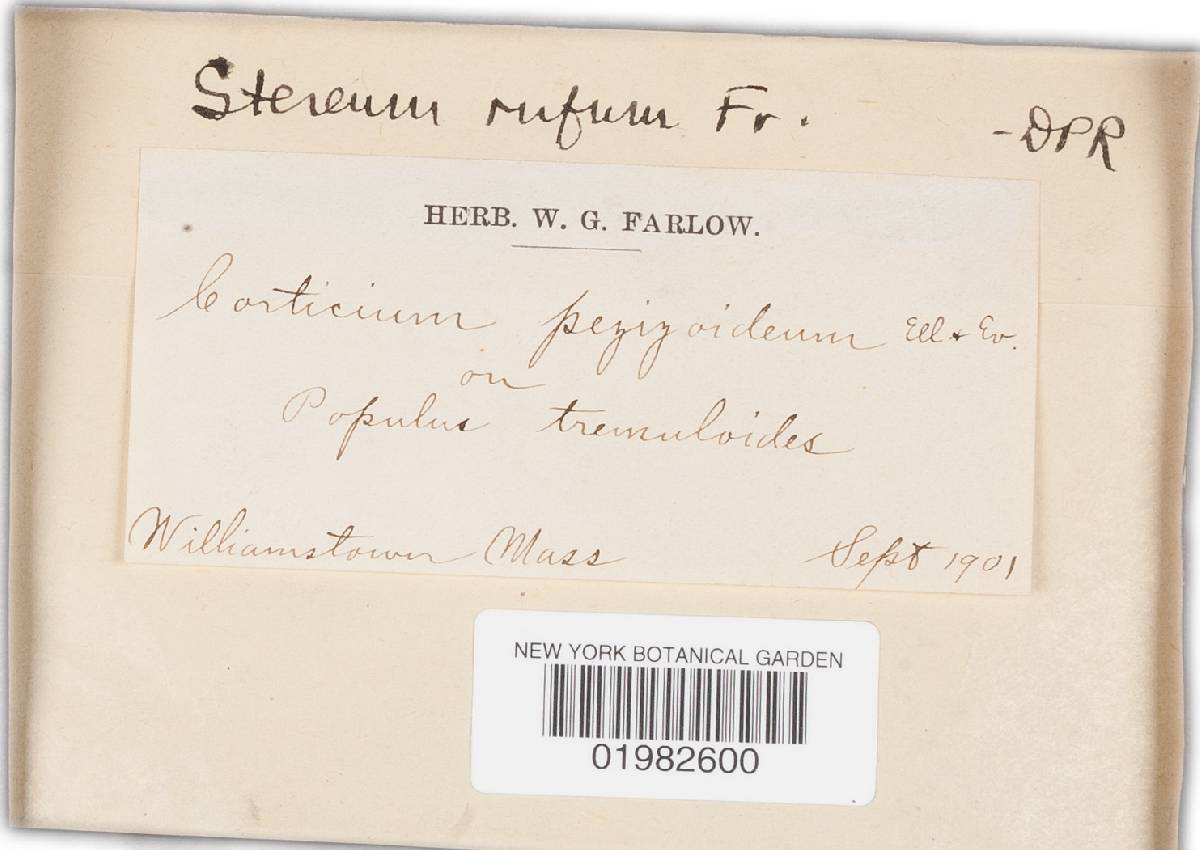 Stereum rufum Fr. -DPR
HERB. W. G. FARLOW.
Corticium pezizoideum Ell & Ev.
on
Populus tremuloides
Williamstown Mass Sept 1901
NEW YORK BOTANICAL GARDEN
01982600